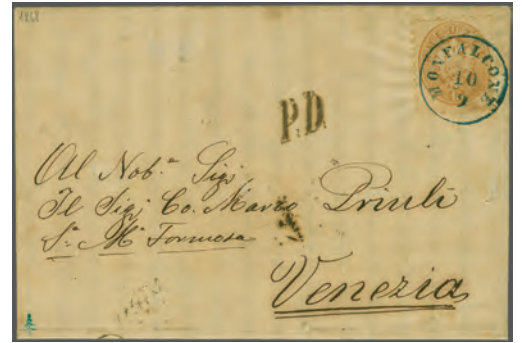 1868
MONFALCONE
10
9
P.D.
Al Nob.e Sigr
Il Sigr Co. Marco Priuli
Sa Ma Formosa
Venezia